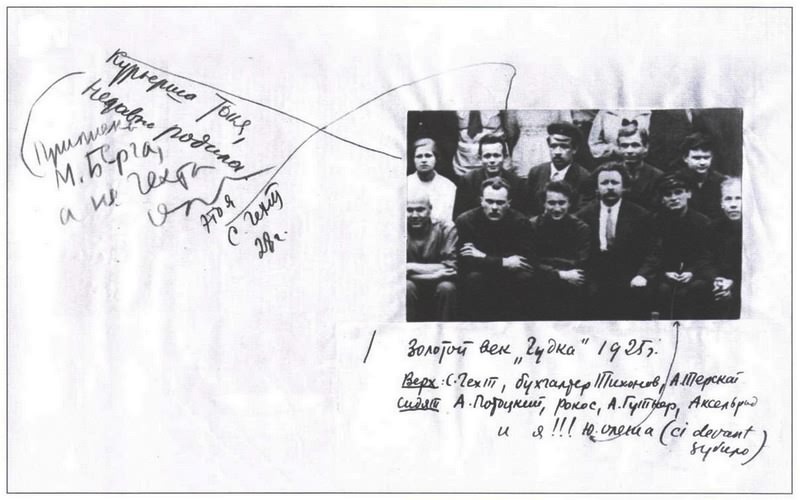 Курьерша Тоня,
недавно родила
М. Берга,
а не Гехта
это я
С. Гехт
28 г.
Золотой век „Гудка“ 1925 г.
Верх: С. Гехт, бухгалтер Тихонов, А. Терской
Сидят А. Потоцкий, Рокос, А. Гутнер, Аксельрод
и я!!! Ю. Олеша (ci devant
зубило)